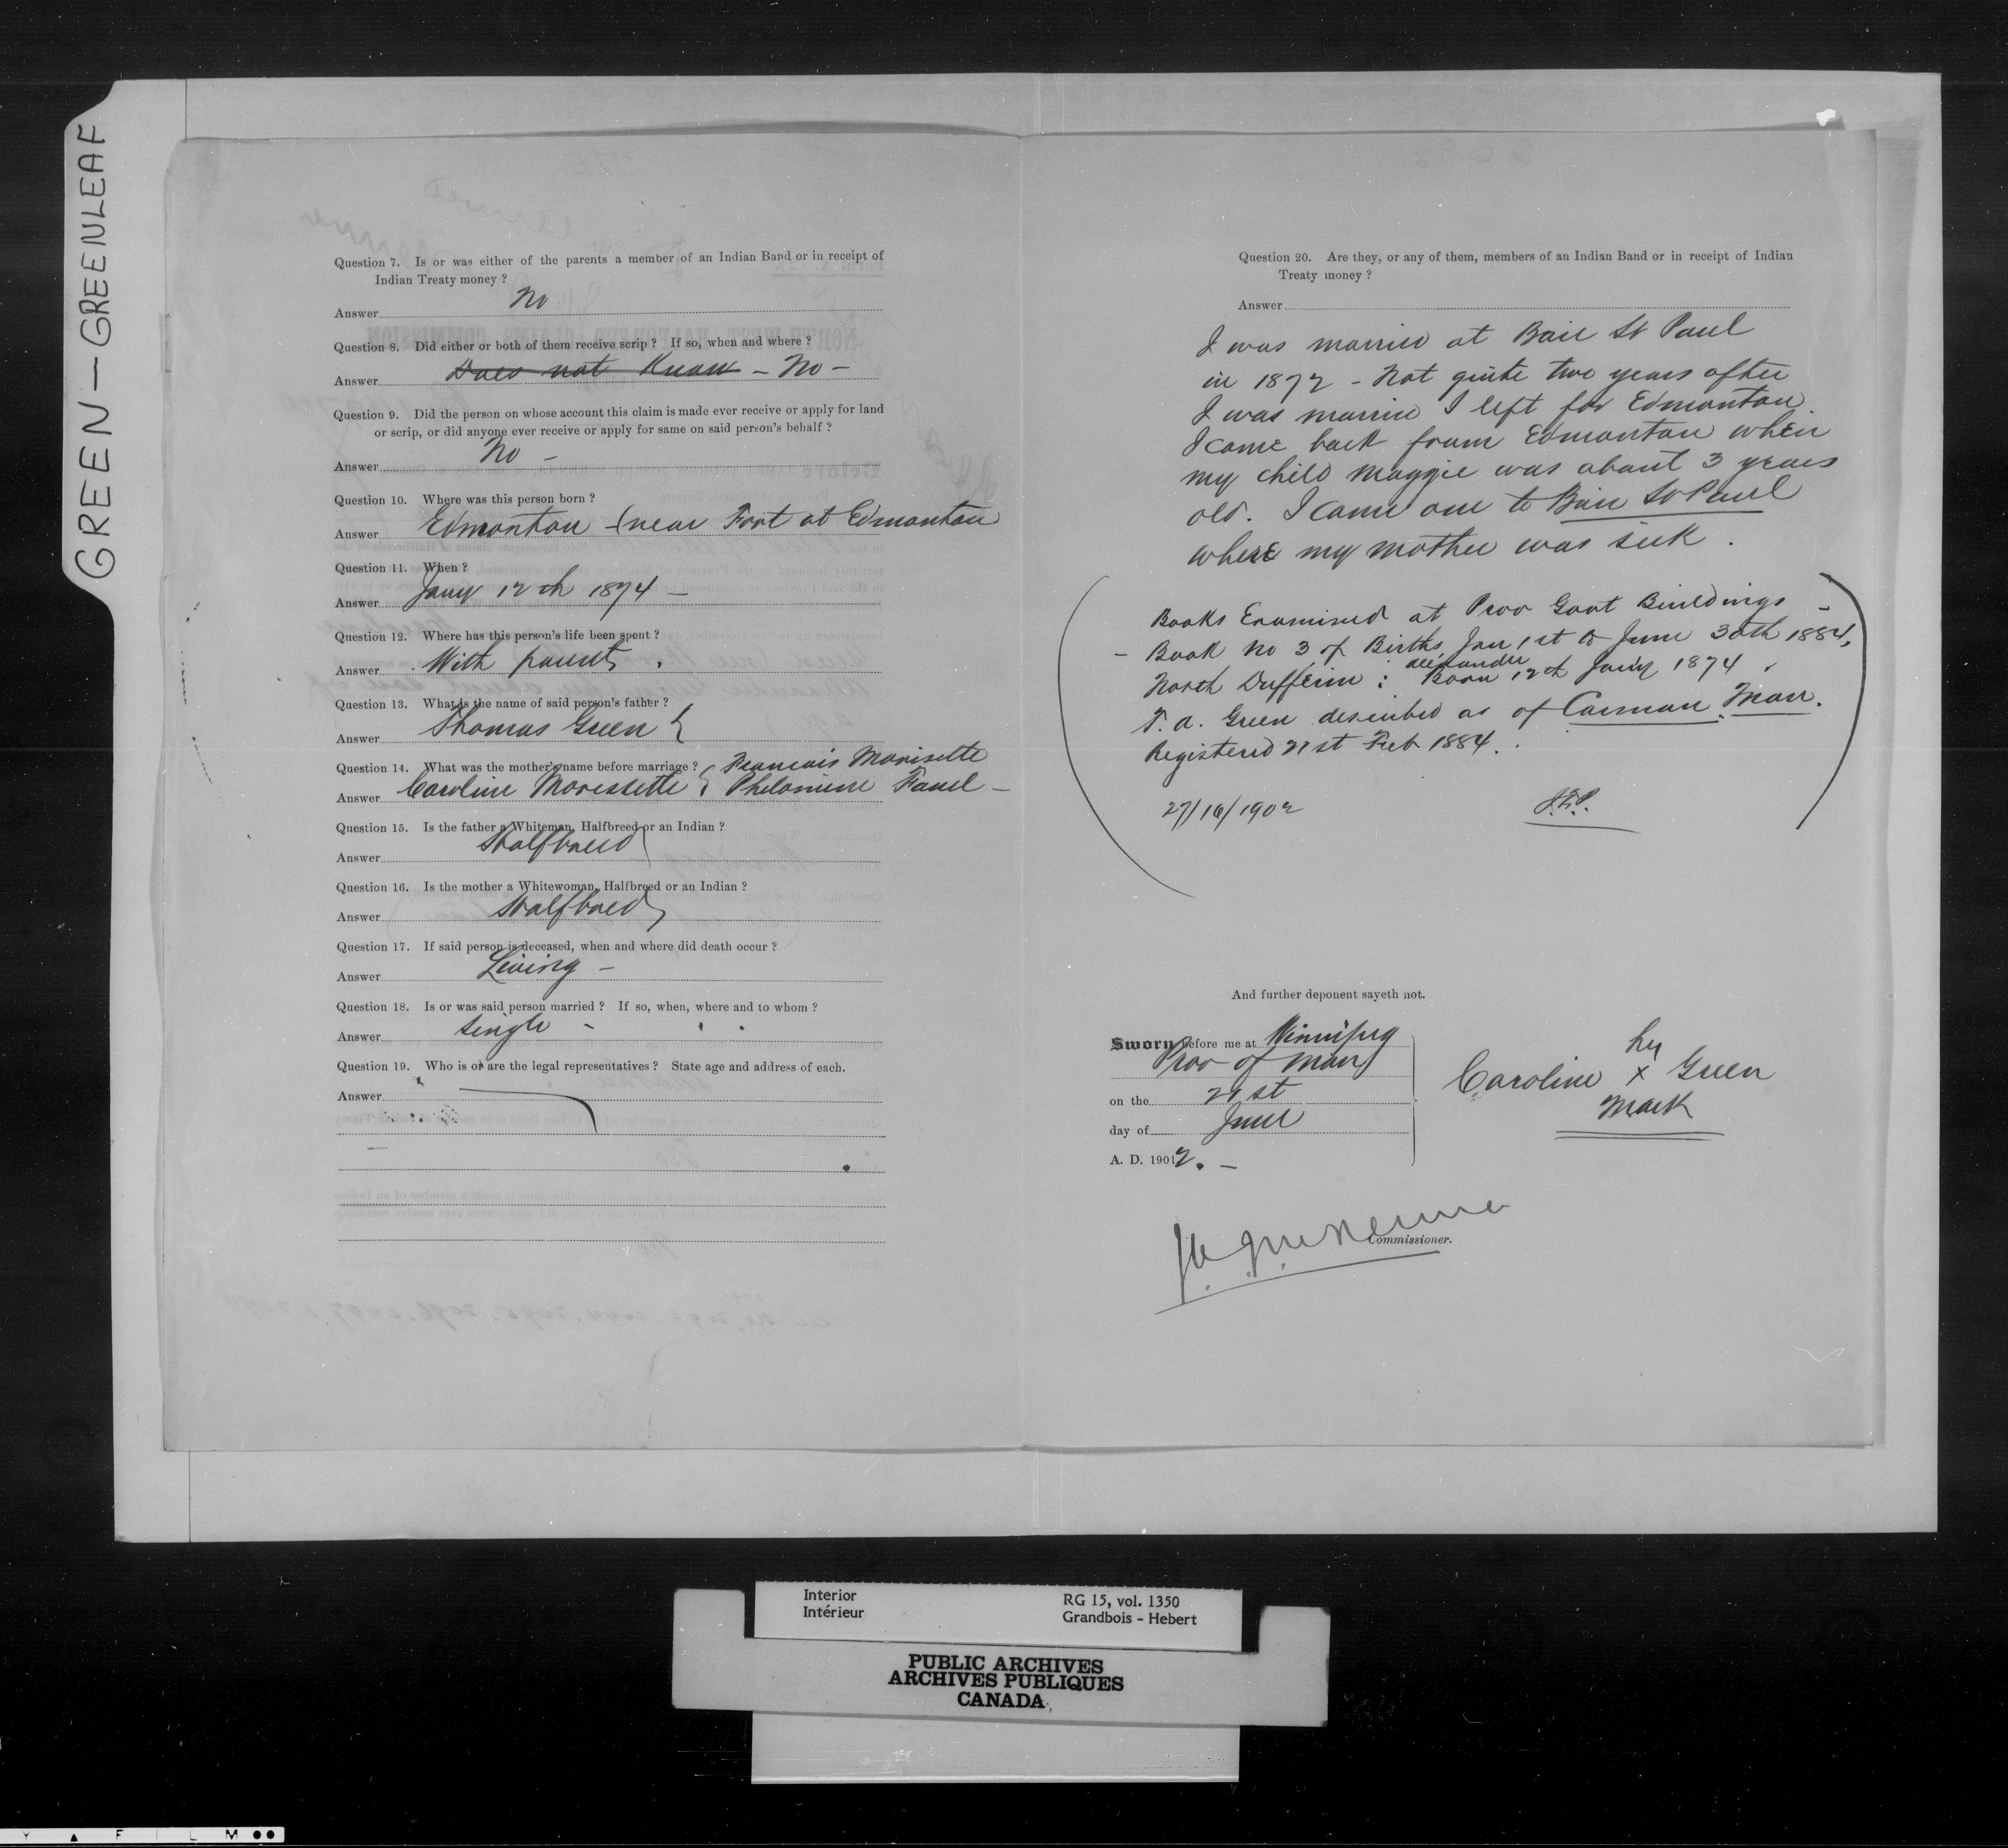 GREEN — GREENLEAF
Question 7. Is or was either of the parents a member of an Indian Band or in receipt of
Indian Treaty money ?
Answer No
Question 8. Did either or both of them receive scrip ? If so, when and where ?
Answer Does not Know – No –
Question 9. Did the person on whose account this claim is made ever receive or apply for land
or scrip, or did anyone ever receive or apply for same on said person's behalf ?
Answer No –
Question 10. Where was this person born ?
Answer Edmonton – (near Fort at Edmonton
Question 11. When ?
Answer Jany 12th 1874 –
Question 12. Where has this person's life been spent ?
Answer With parents.
Question 13. What is the name of said person's father ?
Answer Thomas Green {
Question 14. What was the mother's name before marriage ? Francois Morisette
Answer Caroline Moressette { Philomine Fauel –
Question 15. Is the father a Whiteman, Halfbreed or an Indian ?
Answer Halfbreed
Question 16. Is the mother a Whitewoman, Halfbreed or an Indian ?
Answer Halfbreed
Question 17. If said person is deceased, when and where did death occur ?
Answer Living –
Question 18. Is or was said person married ? If so, when, where and to whom ?
Answer Single –
Question 19. Who is or are the legal representatives ? State age and address of each.
Answer
Question 20. Are they, or any of them, members of an Indian Band or in receipt of Indian
Treaty money ?
Answer
I was married at Baie St Paul
in 1872 – Not quite two years after
I was married I left for Edmonton.
I came back from Edmonton when
my child Maggie was about 3 years
old. I came one to Baie St Paul
where my mother was sick.
Books Examined at Prov Govt Buildings –
– Book No 3 of Births, Jan 1st to June 30th 1884,
North Dufferin : alexander Born 12th Jany 1874.
T. A. Green described as of Carman, Man.
Registered 21st Feb 1884.
27/16/1902
And further deponent sayeth not.
Sworn before me at Winnipeg
Prov of Man
on the 21st
day of June
A. D. 1901 2. –
her
Caroline x Green
Mark
Commissioner.
Interior
Intérieur
RG 15, vol. 1350
Grandbois - Hebert
PUBLIC ARCHIVES
ARCHIVES PUBLIQUES
CANADA